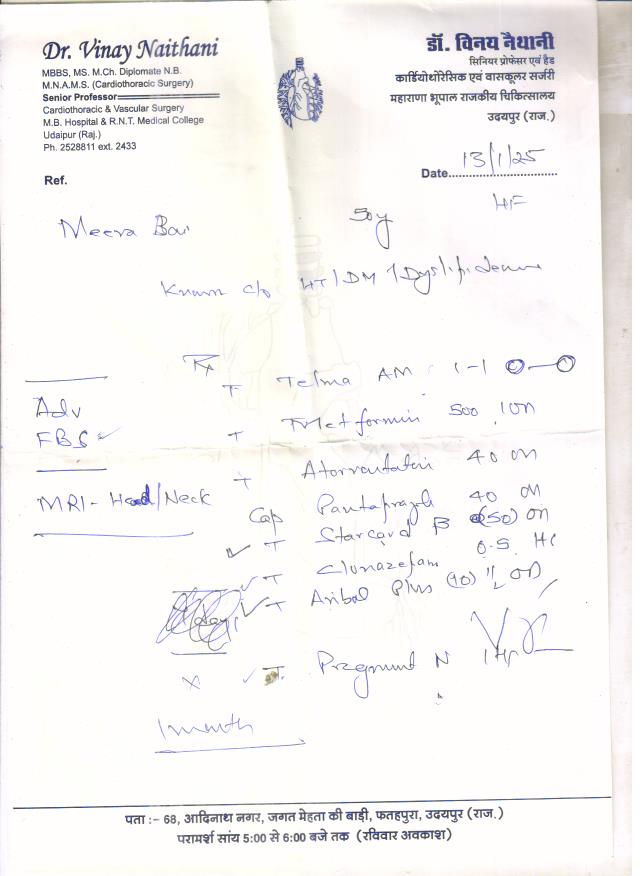 Dr. Vinay Naithani
MBBS, MS. M.Ch. Diplomate N.B.
M.N.A.M.S. (Cardiothoracic Surgery)
Senior Professor
Cardiothoracic & Vascular Surgery
M.B. Hospital & R.N.T. Medical College
Udaipur (Raj.)
Ph. 2528811 ext. 2433
डॉ. विनय नैथानी
सिनियर प्रोफेसर एवं हैड
कार्डियोथोरेसिक एवं वासकूलर सर्जरी
महाराणा भूपाल राजकीय चिकित्सालय
उदयपुर (राज.)
Date 13/1/25
Ref.
Meera Bai 50y
Known c/o HT/DM/
Rx
T Telma AM 1-1
Adv
T Metformin 500
FBS
T 40 on
MRI - Head/Neck
Cap 40 on
T Starcard B (50) on
T Clonazepam 0.5
T Plus (10)
T. N
1 month
पता :– 68, आदिनाथ नगर, जगत मेहता की बाड़ी, फतहपुरा, उदयपुर (राज.)
परामर्श सांय 5:00 से 6:00 बजे तक (रविवार अवकाश)